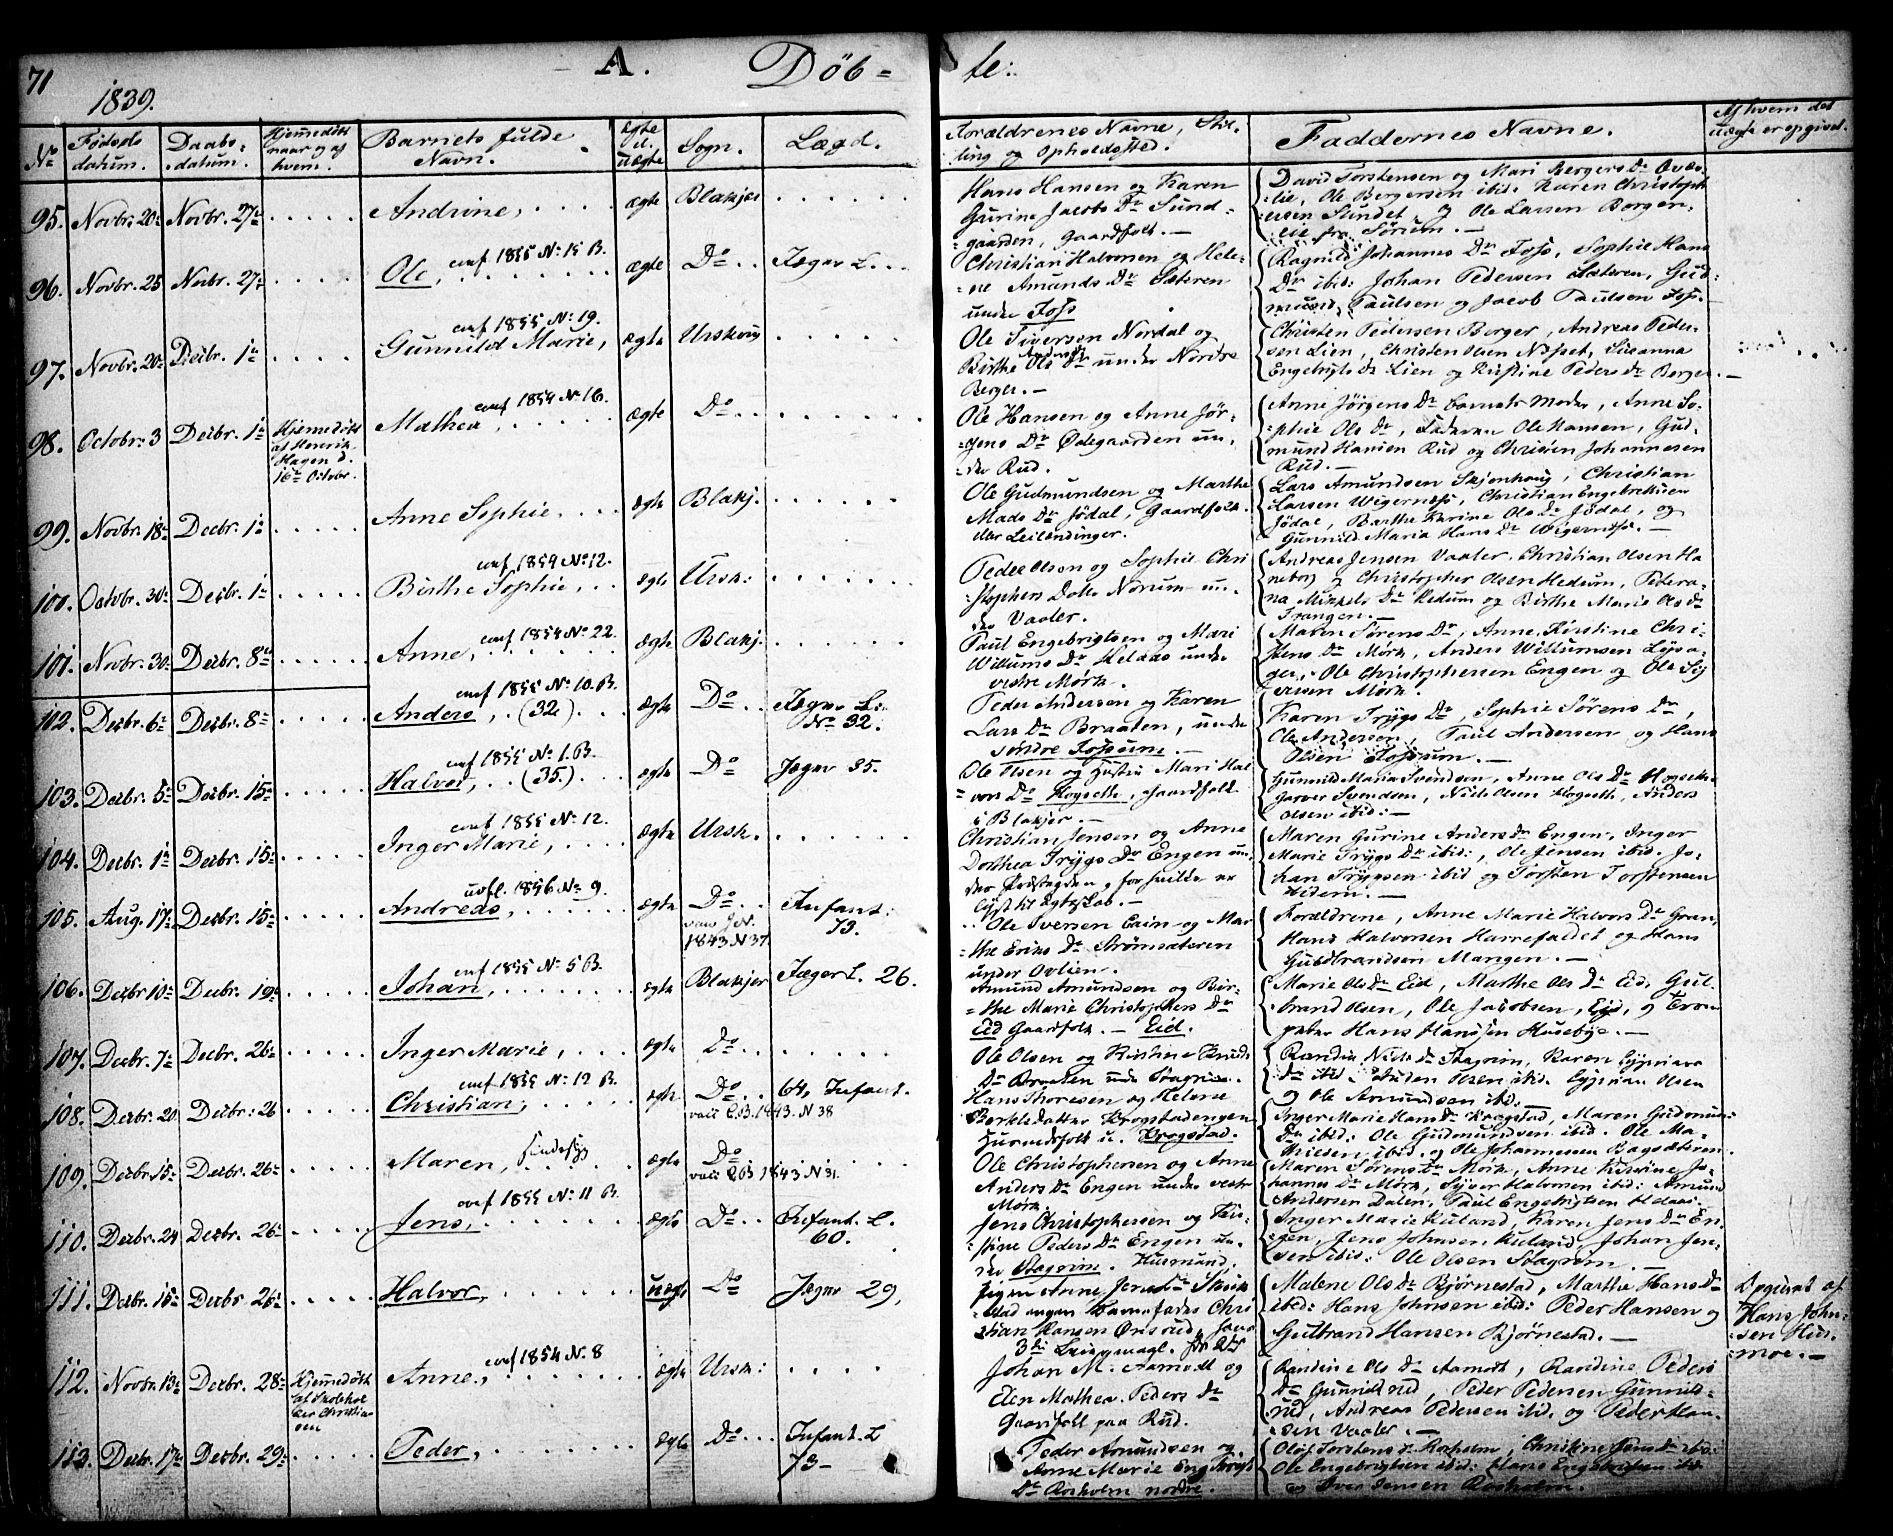 71
A. Döb= te:
1839.
No Fødsels datum. Daabs= datum. Hjemmedöbt naar og af hvem. Barnets fulde Navn. ægte el. uægte Sogn. Lægd. Forældrenes Navne, Stilling og Opholdssted. Faddernes Navne. Af hvem det uægte er opgivet.
95. Novbr. 20de Novbr. 27de Andrine, ægte Blakjer
Hans Hansen og Karen
Gurine Jacobs Dr Sund-
gaarden, Gaardfolk.
David Torstensen og Mari Bergers Dr
Ole Bergersen ibid: Karen Christoph
ersen Sundet, og Ole Larsen Berger-
eie fra Sörum.
96. Novbr. 25 Novbr. 27de Ole, conf 1855 No 15 B. ægte Do Jægnr L.
Christian Halvorsen og Hele-
ne Amunds Dr Sæteren
under Foss
Ragnild Johannes Dr Foss, Sophie Hans
Dr ibid: Johan Pedersen Sæteren, Gud-
mund Paulsen og Jacob Paulsen Foss.
97. Novbr. 20de Decbr. 1ste Gunnild Marie, conf 1855 No 19. ægte Urskoug
Ole Siversen Nordal og
Birthe Ols Dr under Nordre
Berger.
Christen Pedersen Berger, Andreas Peder-
sen Lien, Christen Olsen Nesset, Susanna
Engebrigts Dr Lien og Kristine Peders Dr Berger.
98. Octobr: 3 Decbr. 1ste Hjemmedöbt af Henrik Hagen d. 16de Octobr. Mathea, conf 1854 No 16. ægte Do
Ole Hansen og Anne Jör-
gens Dr Ödegaarden un-
der Rud.
Anne Jörgens Dr barnets Moder, Anne So-
phie Ols Dr, Faderen Ole Hansen, Gud-
mund Hansen Rud og Christen Johannesen
Rud.
99. Novbr. 18de Decbr. 1ste Anne Sophie. ægte Blakj.
Ole Gudmundsen og Marthe
Mads Dr Jödal, Gaardfolk
eller Leilændinger.
Lars Amundsen Skjonhoug, Christian
Larsen Wigernæss, Christian Engebrettsen
Jödal, Barthe Karine Ols Dr Jödal, og
Gunnild Maria Hans Dr Wigernæss.
100. Octobr. 30te Decbr. 1ste Birthe Sophie, conf 1854 No 12. ægte Ursk:
Peder Olsen og Sophie Chri
stophers Datter Norum un-
der Vaaler.
Andreas Jensen Vaaler. Christian Olsen Ha
neborg og Christopher Olsen Hedum, Peder-
na Mikkels Dr Hedum og Birthe Marie Ols Dr
Trangen.
101. Novbr. 30te Decbr. 8de Anne, conf 1854 No 22. ægte Blakj.
Paul Engebrigtsen og Mari
Willums Dr Helaas under
vestre Mörk.
Maren Sörens Dr, Anne Kirstine Chri-
stens Dr Mörk, Anders Willumsen
Ole Christophersen Engen og Ole Si
versen Mörk.
102. Decbr. 6te Decbr. 8de Anders, (32) conf 1855 No 10. B. ægte Do Jægnr L. No 32.
Peder Andersen og Karen
Lars Dr Braaten, under
söndre Fossum.
Karen Trygs Dr, Sophie Sörens Dr,
Ole Andersen, Paul Andersen og Hans
Olsen Fossum.
103. Decbr. 5te Decbr. 15de Halvor, (35) conf 1855 No 1. B. ægte Do Jægnr 35.
Ole Olsen og Hustru Mari Hal
vors Dr Hogseth, Gaardfolk
i Blakjer.
Gunnild Maria Svendsen, Anne Ols Dr Hogseth
Svendsen, Niels Olsen Hogseth, Anders
Olsen ibid:
104. Decbr. 1ste Decbr. 15de Inger Marie, conf 1855 No 12. ægte Ursk.
Christian Jensen og Anne
Dorthea Trygs Dr Engen un-
der Præstegden, for hvilke er
lyst til Ægteskab.
Maren Gurine Anders Dr Engen, Inger
Marie Trygs Dr ibid:, Ole Jensen ibid. Jo-
han Trygsen ibid og Torsten Torstensen
Hedem.
105. Aug. 17de Decbr. 15de Andreas, udfl. 1856 No 9. ægte Do 1843 N 37. Infant: 73.
Ole Iversen Cain og Mar-
the Eriks Dr Strömsæteren
under Ovlien.
Forældrene, Anne Marie Halvors Dr Gran,
Hans Halvorsen Harrefaldet og Hans
Guldbrandsen Mangen.
106. Decbr 10de Decbr. 19de Johan, conf 1855 No 5 B. ægte Blakjer Jæger L. 26.
Amund Amundsen og Bir-
the Marie Christophers Dr
Eid Gaardfolk. Eid.
Marie Ols Dr Eid, Marthe Ols Dr Eid, Gul-
brand Olsen, Ole Jacobsen, Eid, og Trom
peter Hans Hanssen Huseby.
107. Decbr. 7de Decbr. 26de Inger Marie, ægte Do
Ole Olsen og Kirstine Knuds
Dr Braaten under Stagrim.
Randine Niels Dr Stagrim, Karen Cyprians
Dr ibid. Auden Olsen ibid. Cyprian Olsen
og Ole Amundsen ibid:
108. Decbr. 20 Decbr: 26 Christian, conf 1855 No 12 B. ægte Do 1843. N 38 64, Infant.
Hans Thoresen og Helene
Bertelsdatter Krogstadengen
Huusmdsfolk u. Krogstad.
Inger Marie Hans Dr Krogstad, Maren Gudmun-
Dr ibid: Ole Gudmundsen ibid. Ole Ma-
thiesen ibid. og Ole Johannessen Bagsæteren.
109. Decbr. 15de Decbr. 26de Maren, Sindssyg ægte Do 1843 N 31.
Ole Christophersen og Anne
Anders Dr Engen under vestre
Mörk.
Maren Sörens Dr Mörk, Anne Kirstine Jo-
hannes Dr Mörk, Syver Halvorsen ibid: Amund
Andersen Dalen, Paul Engebrigtsen Helaas.
110. Decbr. 24 Decbr. 26de Jens, conf 1855 No 11 B. ægte Do Infant. L. 60.
Jens Christophersen og Kir-
stine Peders Dr Engen un-
der Stagrim. Husmand,
Inger Marie Kuland, Karen Jens Dr En-
gen, Jens Johnsen Kuland, Johan Jen-
sen ibid: Ole Olsen Stagrim.
111. Decbr. 15de Decbr 26de Halvor, uægte Do Jægnr 29,
Pigen Anne Jens Dr
Barnefader Chri
stian Hansen
Malene Ols Dr Björnestad, Marthe Hans Dr
ibid: Hans Johnsen ibid: Peder Hansen og
Gulbrand Hansen Björnestad.
Opgivet af
Hans John-
sen Hus-
moe.
112. Novbr. 13de Decbr. 28de Hjemmedöbt af Skoleholder Christiansen Anne, conf 1854 No 8 ægte Ursk:
Johan M. Aamodt og
Elen Mathea Peders Dr
Gaardfolk paa Rud.
Randine Ols Dr Aamodt, Randine Peders
Dr Gunnildrud, Peder Pedersen Gunnild-
rud, Andreas Pedersen ibid. og Peder Han-
sen Vaaler.
113. Decbr. 17de Decbr. 29de Peder, ægte Do Infant. L 73
Peder Amundsen og
Anne Marie Engebrigts
Dr Roeholm nordre.
Oloff Torstens Dr Roeholm, Christine Jens Dr ibid:
Ole Engebrigtsen ibid: Hans Engebrigtsen ibid.
og Iver Jensen Roeholm.